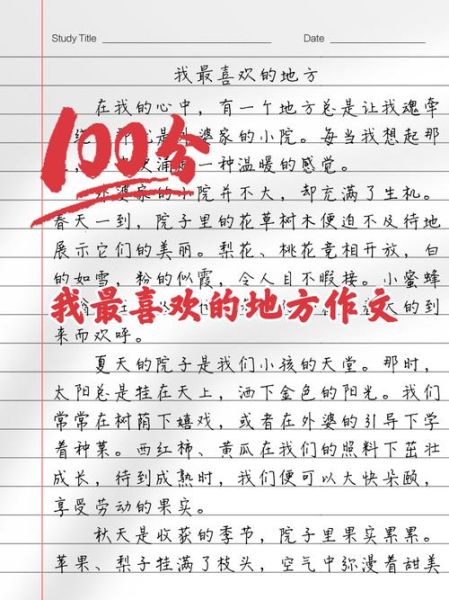 Study Title
Date
我最喜欢的地方
在我的心中，有一个地方总是让我魂牵
婆家的小院。每当我想起那
一种温暖的感觉。
100分
外婆家的小院并不大，却充满了生机。
春天一到，院子里的花草树木便迫不及待地
展示它们的美丽。梨花、桃花竞相开放，白
的如雪，粉的似霞，令人目不暇接。小蜜蜂
我最喜欢的地方作文
天的到
来而欢呼。
夏天的院子是我们小孩的天堂。那时，
太阳总是挂在天上，洒下金色的阳光。我们
常常在树荫下嬉戏，或者在外婆的引导下学
着种菜。西红柿、黄瓜在我们的照料下茁壮
成长，待到成熟时，我们便可以大快朵颐，
享受劳动的果实。
秋天是收获的季节，院子里果实累累。
苹果、梨子挂满了枝头，空气中弥漫着甜美